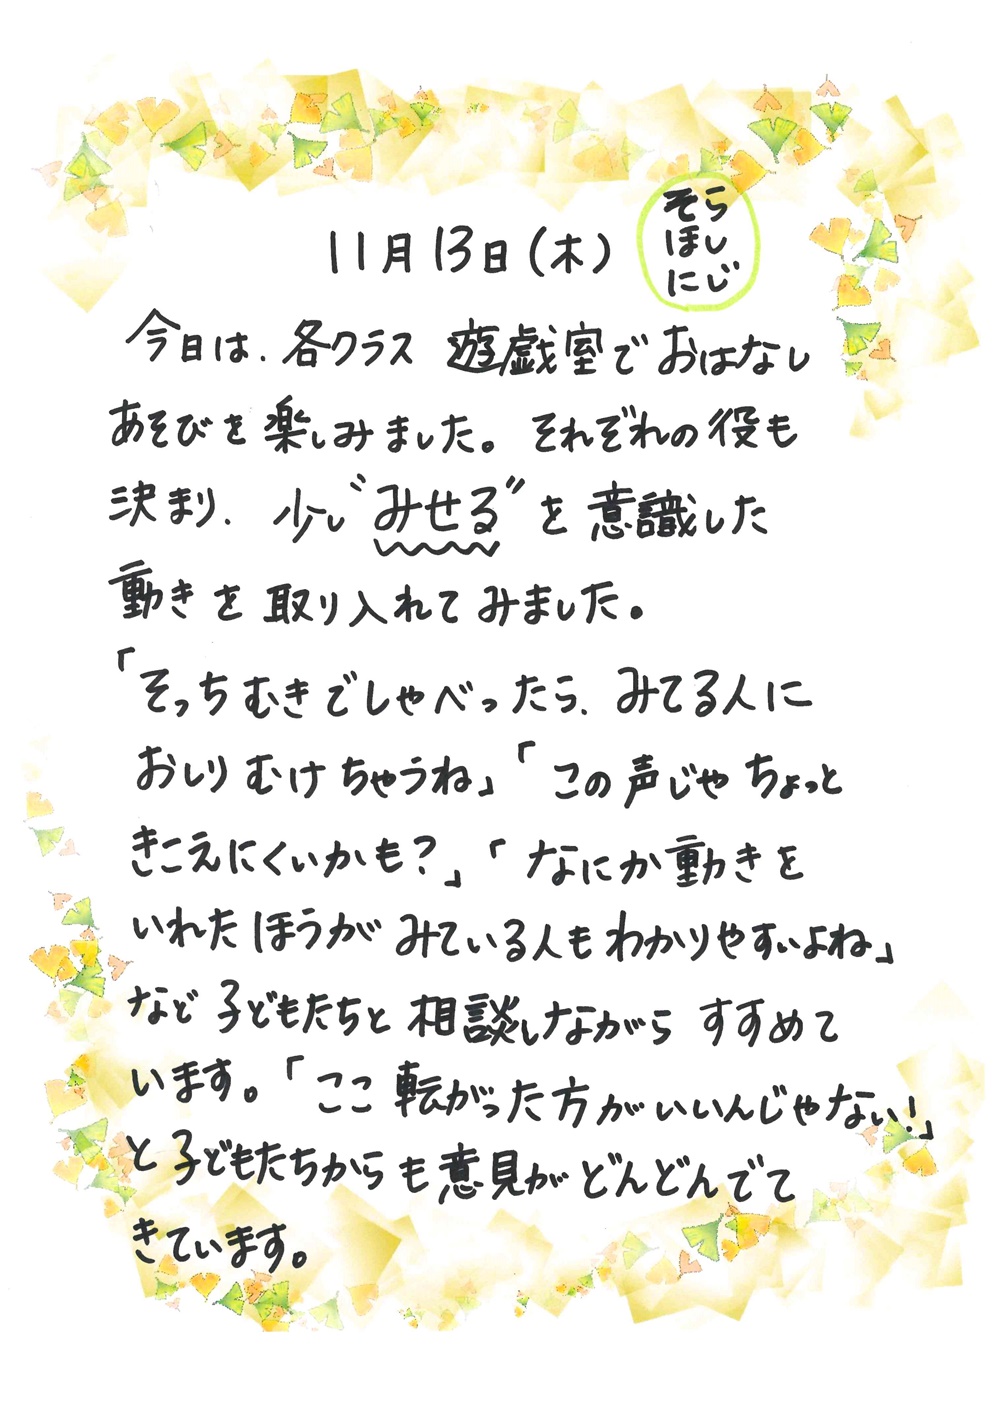 11月13日(木)
そら
ほし
にじ
今日は、各クラス 遊戯室でおはなし
あそびを楽しみました。それぞれの役も
決まり、少し"みせる"を意識した
動きを取り入れてみました。
「そっちむきでしゃべったら、みてる人に
おしりむけちゃうね」「この声じゃちょっと
きこえにくいかも?」「なにか動きを
いれたほうがみている人もわかりやすいよね」
など子どもたちと相談しながらすすめて
います。「ここ転がった方がいいんじゃない!」
と子どもたちからも意見がどんどんでて
きています。